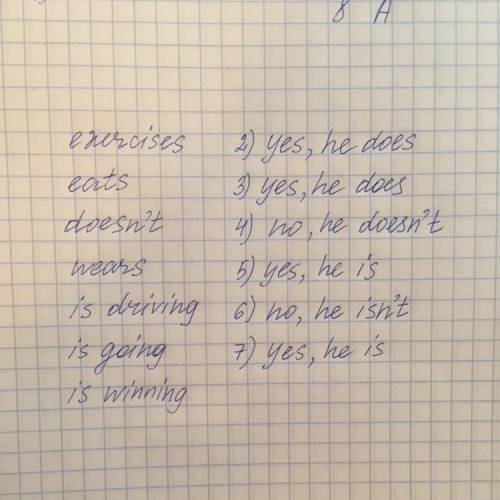 8 A
exercises
eats
doesn't
wears
is driving
is going
is winning
2) yes, he does
3) yes, he does
4) no, he doesn't
5) yes, he is
6) no, he isn't
7) yes, he is